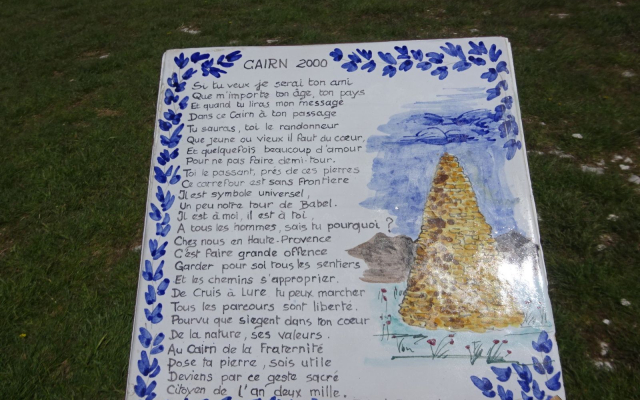 CAIRN 2000
Si tu veux je serai ton ami
Que m'importe ton âge, ton pays
Et quand tu liras mon message
Dans ce Cairn à ton passage
Tu sauras, toi le randonneur
Que jeune ou vieux il faut du cœur,
Et quelquefois beaucoup d'amour
Pour ne pas faire demi-tour.
Toi le passant, près de ces pierres
Ce carrefour est sans frontière
Il est symbole universel,
Un peu notre tour de Babel.
Il est à moi, il est à toi,
A tous les hommes, sais tu pourquoi ?
Chez nous en Haute-Provence
C'est faire grande offence
Garder pour soi tous les sentiers
Et les chemins s'approprier.
De Cruis à Lure tu peux marcher
Tous les parcours sont liberté.
Pourvu que siegent dans ton coeur
De la nature, ses valeurs.
Au Cairn de la Fraternité
Pose ta pierre, sois utile
Deviens par ce geste sacré
Citoyen de l'an deux mille.